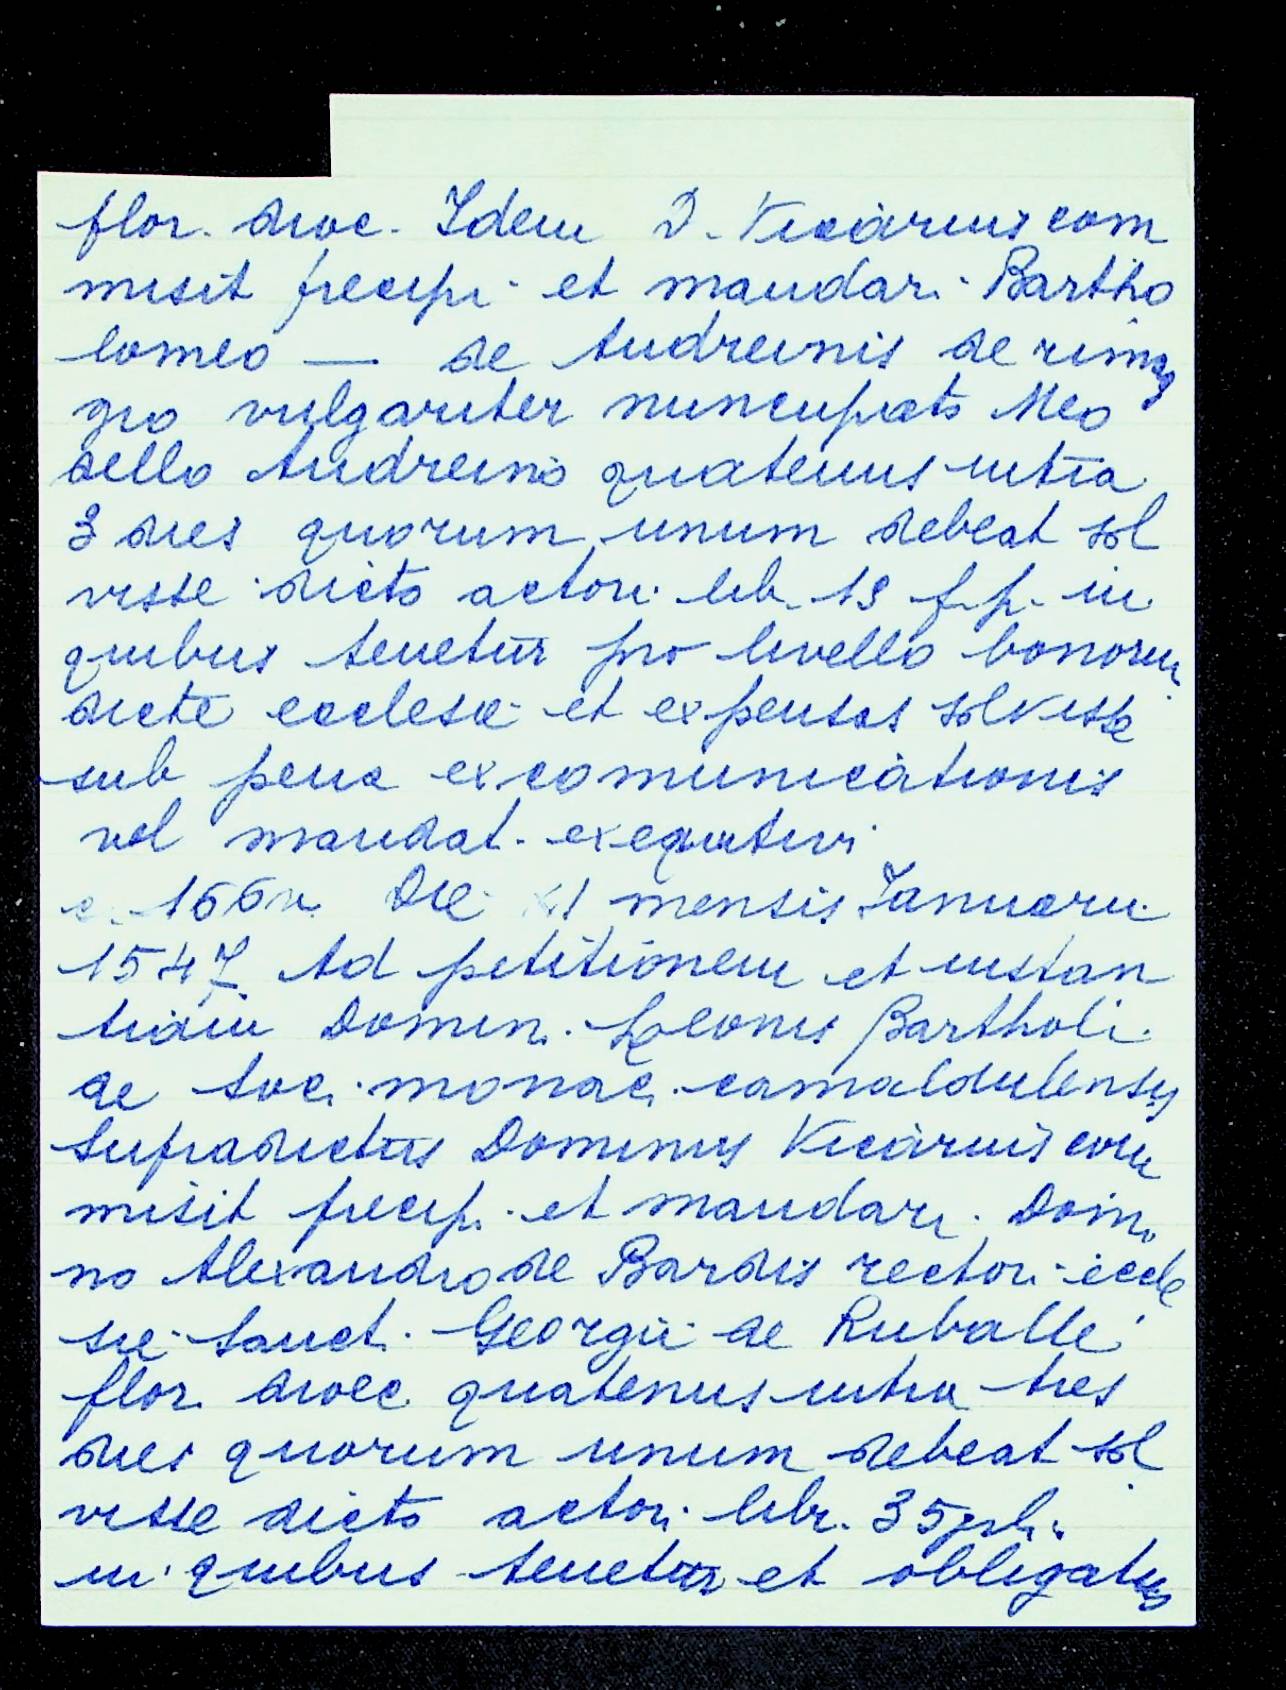 flor. dioc. Idem D. Vicarius com
misit precipi et mandari Bartho
lomeo — de Andreinis de
gno vulgariter nuncupato Meo
dello Andreino quatenus intra
3 dies quorum unum debeat sol
visse dicto actori lib. 19 f.p. in
quibus tenetur pro livello bonorum
dicte ecclesie et expensas solvisse
sub pena excomunicationis
vel mandat. exequutivi
c. 166v Die XI mensis Januarii
1547 Ad petitionem et instan
tiam Domin. Leonis Bartholi
de soc. monac. camaldulensis
Supradictus Dominus Vicarius com
misit precip. et mandari Domi
no Alexandro de Bardis rectori eccle
sie Sanct. Georgii de Ruballe
flor. dioec. quatenus intra tres
dies quorum unum debeat sol
visse dicto actori libr. 35
in quibus tenetur et obligatus